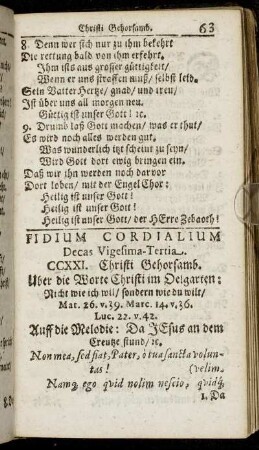 Christi Gehorsamb. 63
8. Denn wer sich nur zu ihm bekehrt
Die rettung bald von ihm erfehrt.
Ihm ists aus grosser güttigkeit/
Wenn er uns straffen muß/ selbst leid.
Sein Vatter Hertze/ gnad/ und treu/
Ist über uns all morgen neu.
Güttig ist unser Gott! ꝛc.
9. Drumb laß Gott machen/ was er thut/
Es wird noch alles werden gut.
Was wunderlich itzt scheint zu seyn/
Wird Gott dort ewig bringen ein.
Daß wir ihn werden noch darvor
Dort loben/ mit der Engel Chor:
Heilig ist unser Gott!
Heilig ist unser Gott!
Heilig ist unser Gott/ der HErre Zebaoth!
FIDIUM CORDIALIUM
Decas Vigesima-Tertia.
CCXXI. Christi Gehorsamb.
Uber die Worte Christi im Oelgarten:
Nicht wie ich wil/ sondern wie du wilt/
Mat. 26. v. 39. Marc. 14. v. 36.
Luc. 22. v. 42.
Auff die Melodie: Da JEsus an dem
Creutze stund/ ꝛc.
Non mea, sed fiat, Pater, ô tua sancta volun-
tas! (velim.
Namq; ego qvid nolim nescio, qvidq́;
1. Da